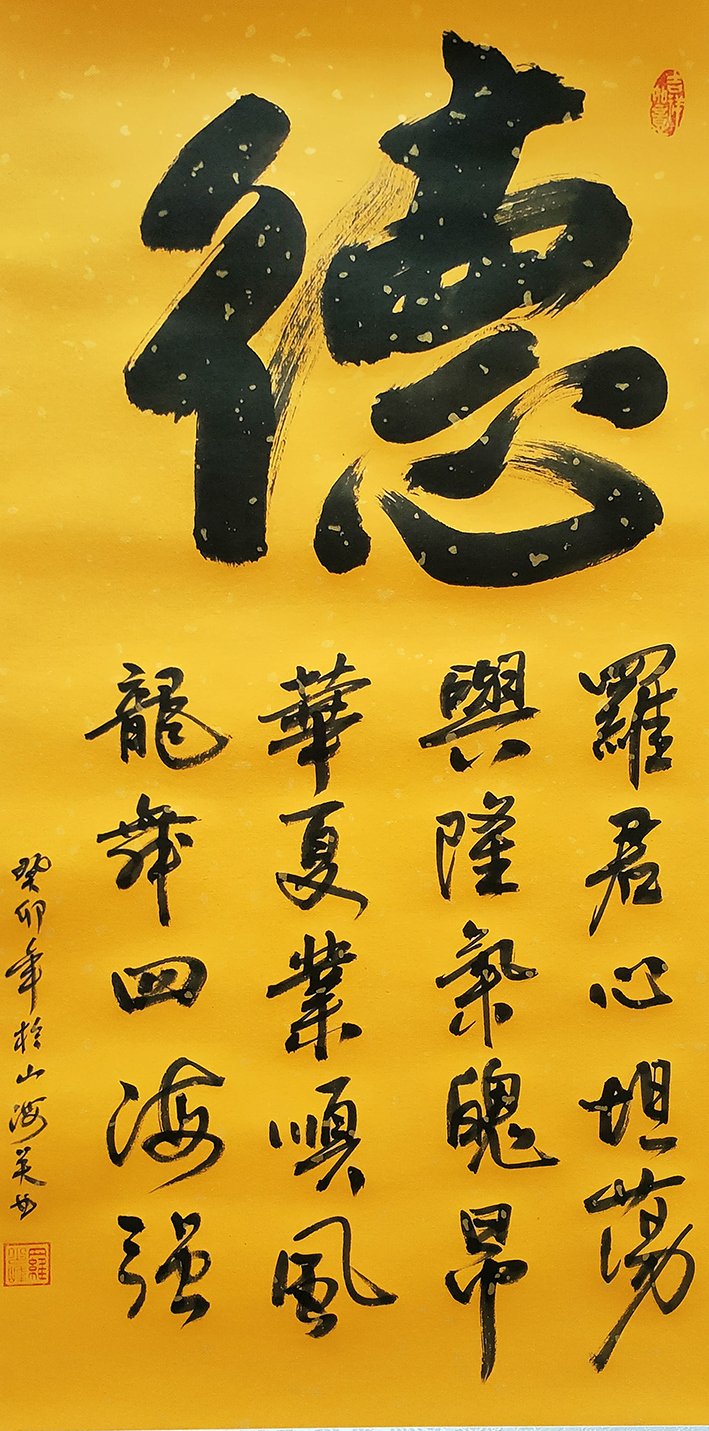 德
羅君心坦蕩
興隆氣魄昂
華夏業順風
龍舞四海强
癸卯年於山海关书